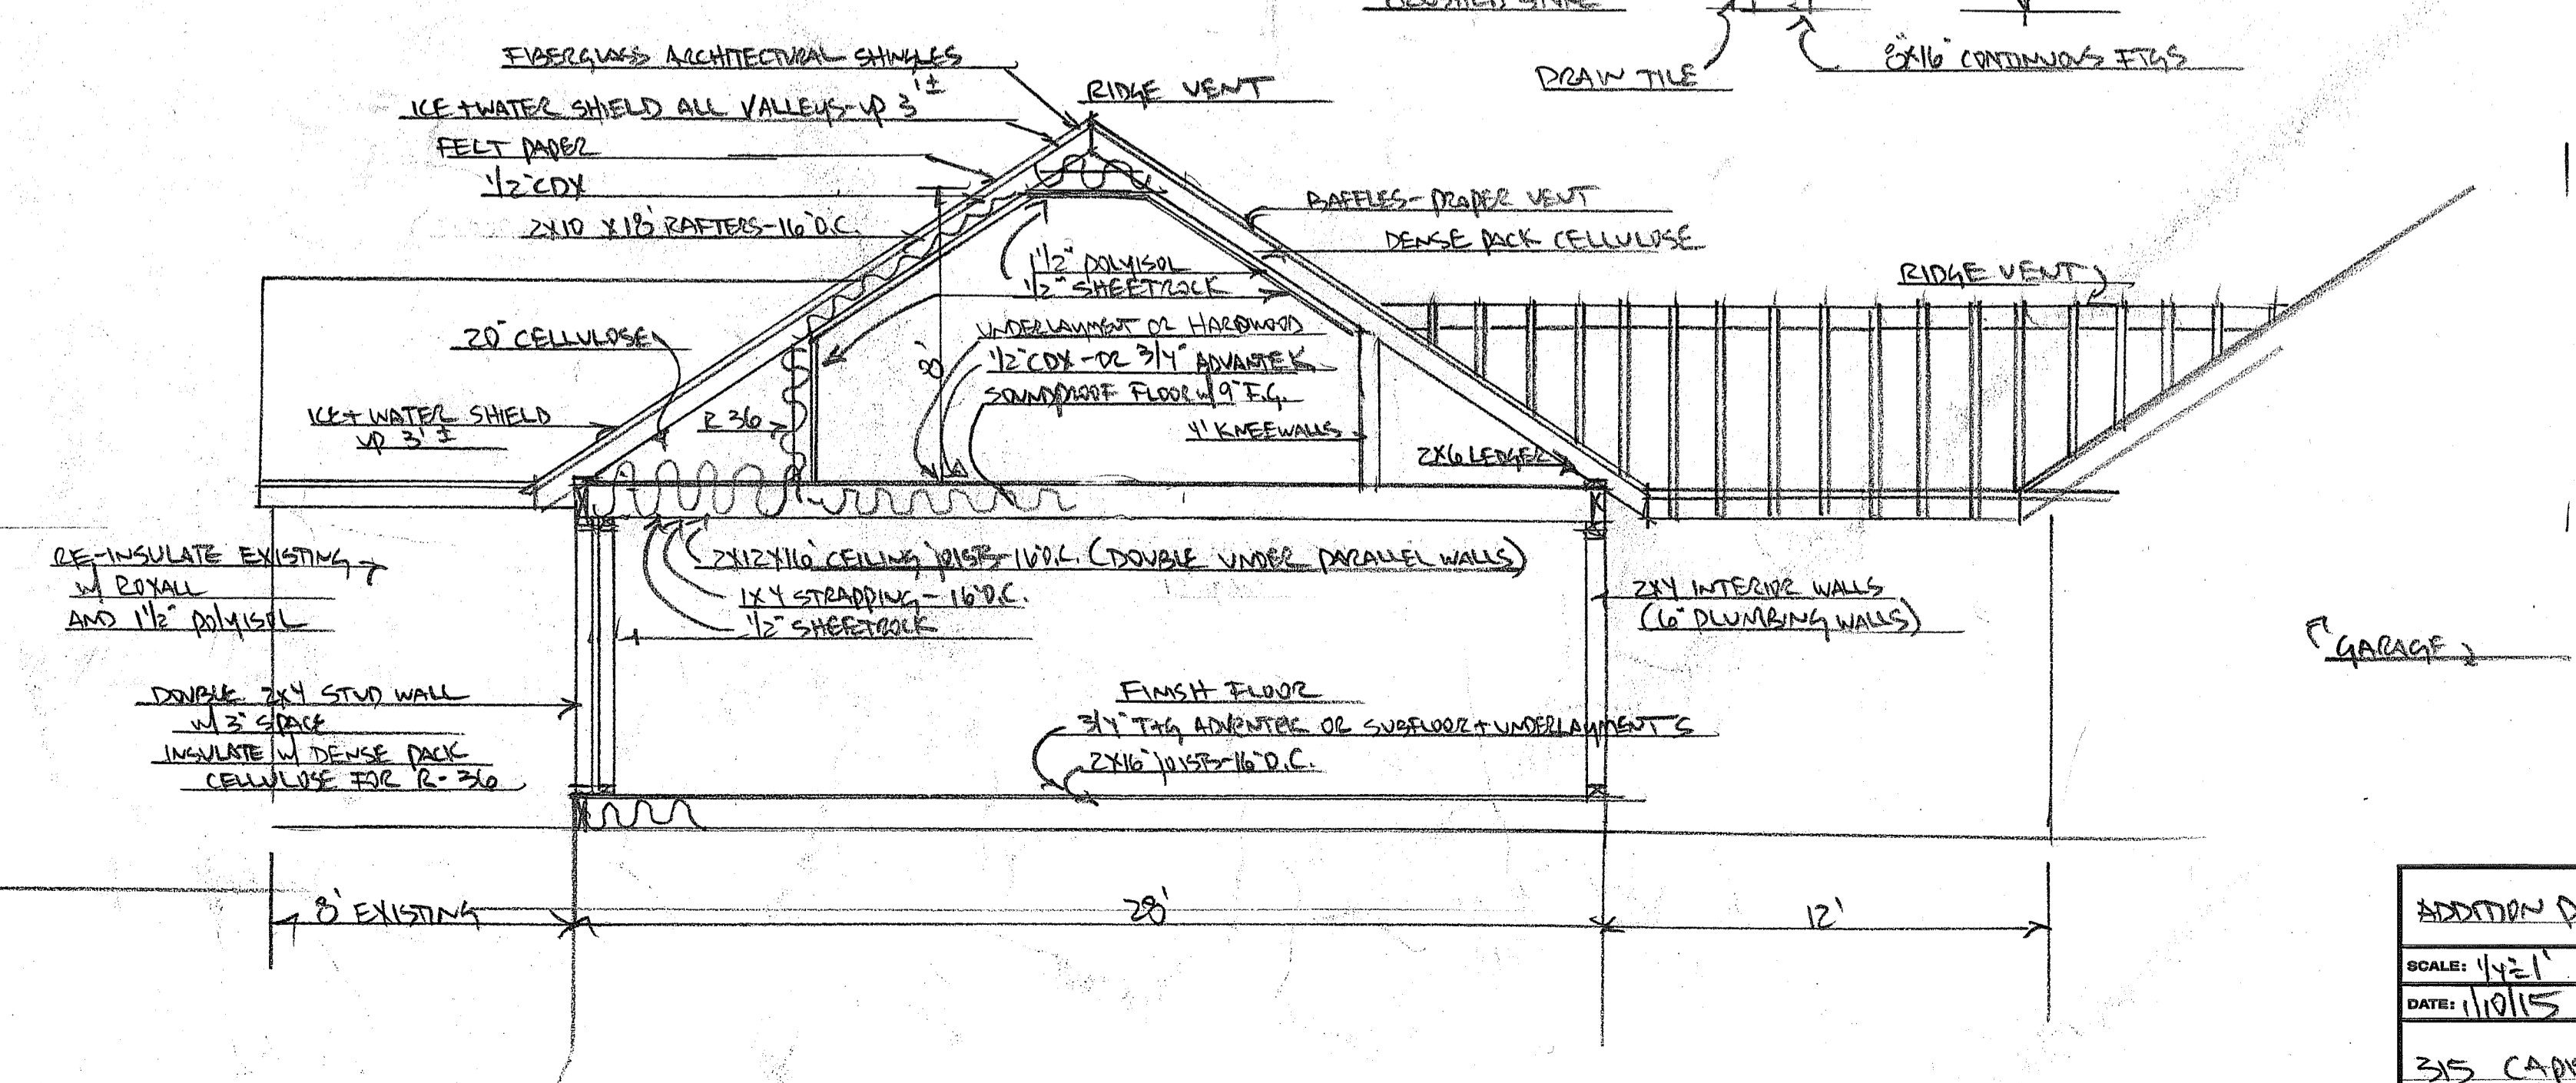 DRAIN TILE
8"X16" CONTINUOUS FTGS
FIBERGLASS ARCHITECTURAL SHINGLES
ICE + WATER SHIELD ALL VALLEYS - UP 3' ±
FELT PAPER
1/2" CDX
2X10 X18' RAFTERS - 16" O.C.
RIDGE VENT
BAFFLES - PROPER VENT
DENSE PACK CELLULOSE
RIDGE VENT
1/2" POLYISOL
1/2" SHEETROCK
20" CELLULOSE
UNDERLAYMENT OR HARDWOOD
1/2" CDX - OR 3/4" ADVANTEK
SOUNDPROOF FLOOR w/ 9" F.G.
8'
ICE + WATER SHIELD
UP 3' ±
R 36
4' KNEEWALLS
2X6 LEDGER
RE-INSULATE EXISTING
w/ ROXALL
AND 1 1/2" POLYISOL
2X12X16' CEILING JOISTS - 16" O.C. (DOUBLE UNDER PARALLEL WALLS)
1X4 STRAPPING - 16" O.C.
1/2" SHEETROCK
2X4 INTERIOR WALLS
(6" PLUMBING WALLS)
GARAGE
DOUBLE 2X4 STUD WALL
w/ 3" SPACE
INSULATE w/ DENSE PACK
CELLULOSE FOR R-36
FINISH FLOOR
3/4" T+G ADVENTEK OR SUBFLOOR + UNDERLAYMENTS
2X16" JOISTS - 16" O.C.
8' EXISTING
28'
12'
ADDITION
SCALE: 1/4"=1'
DATE: 1/10/15
315